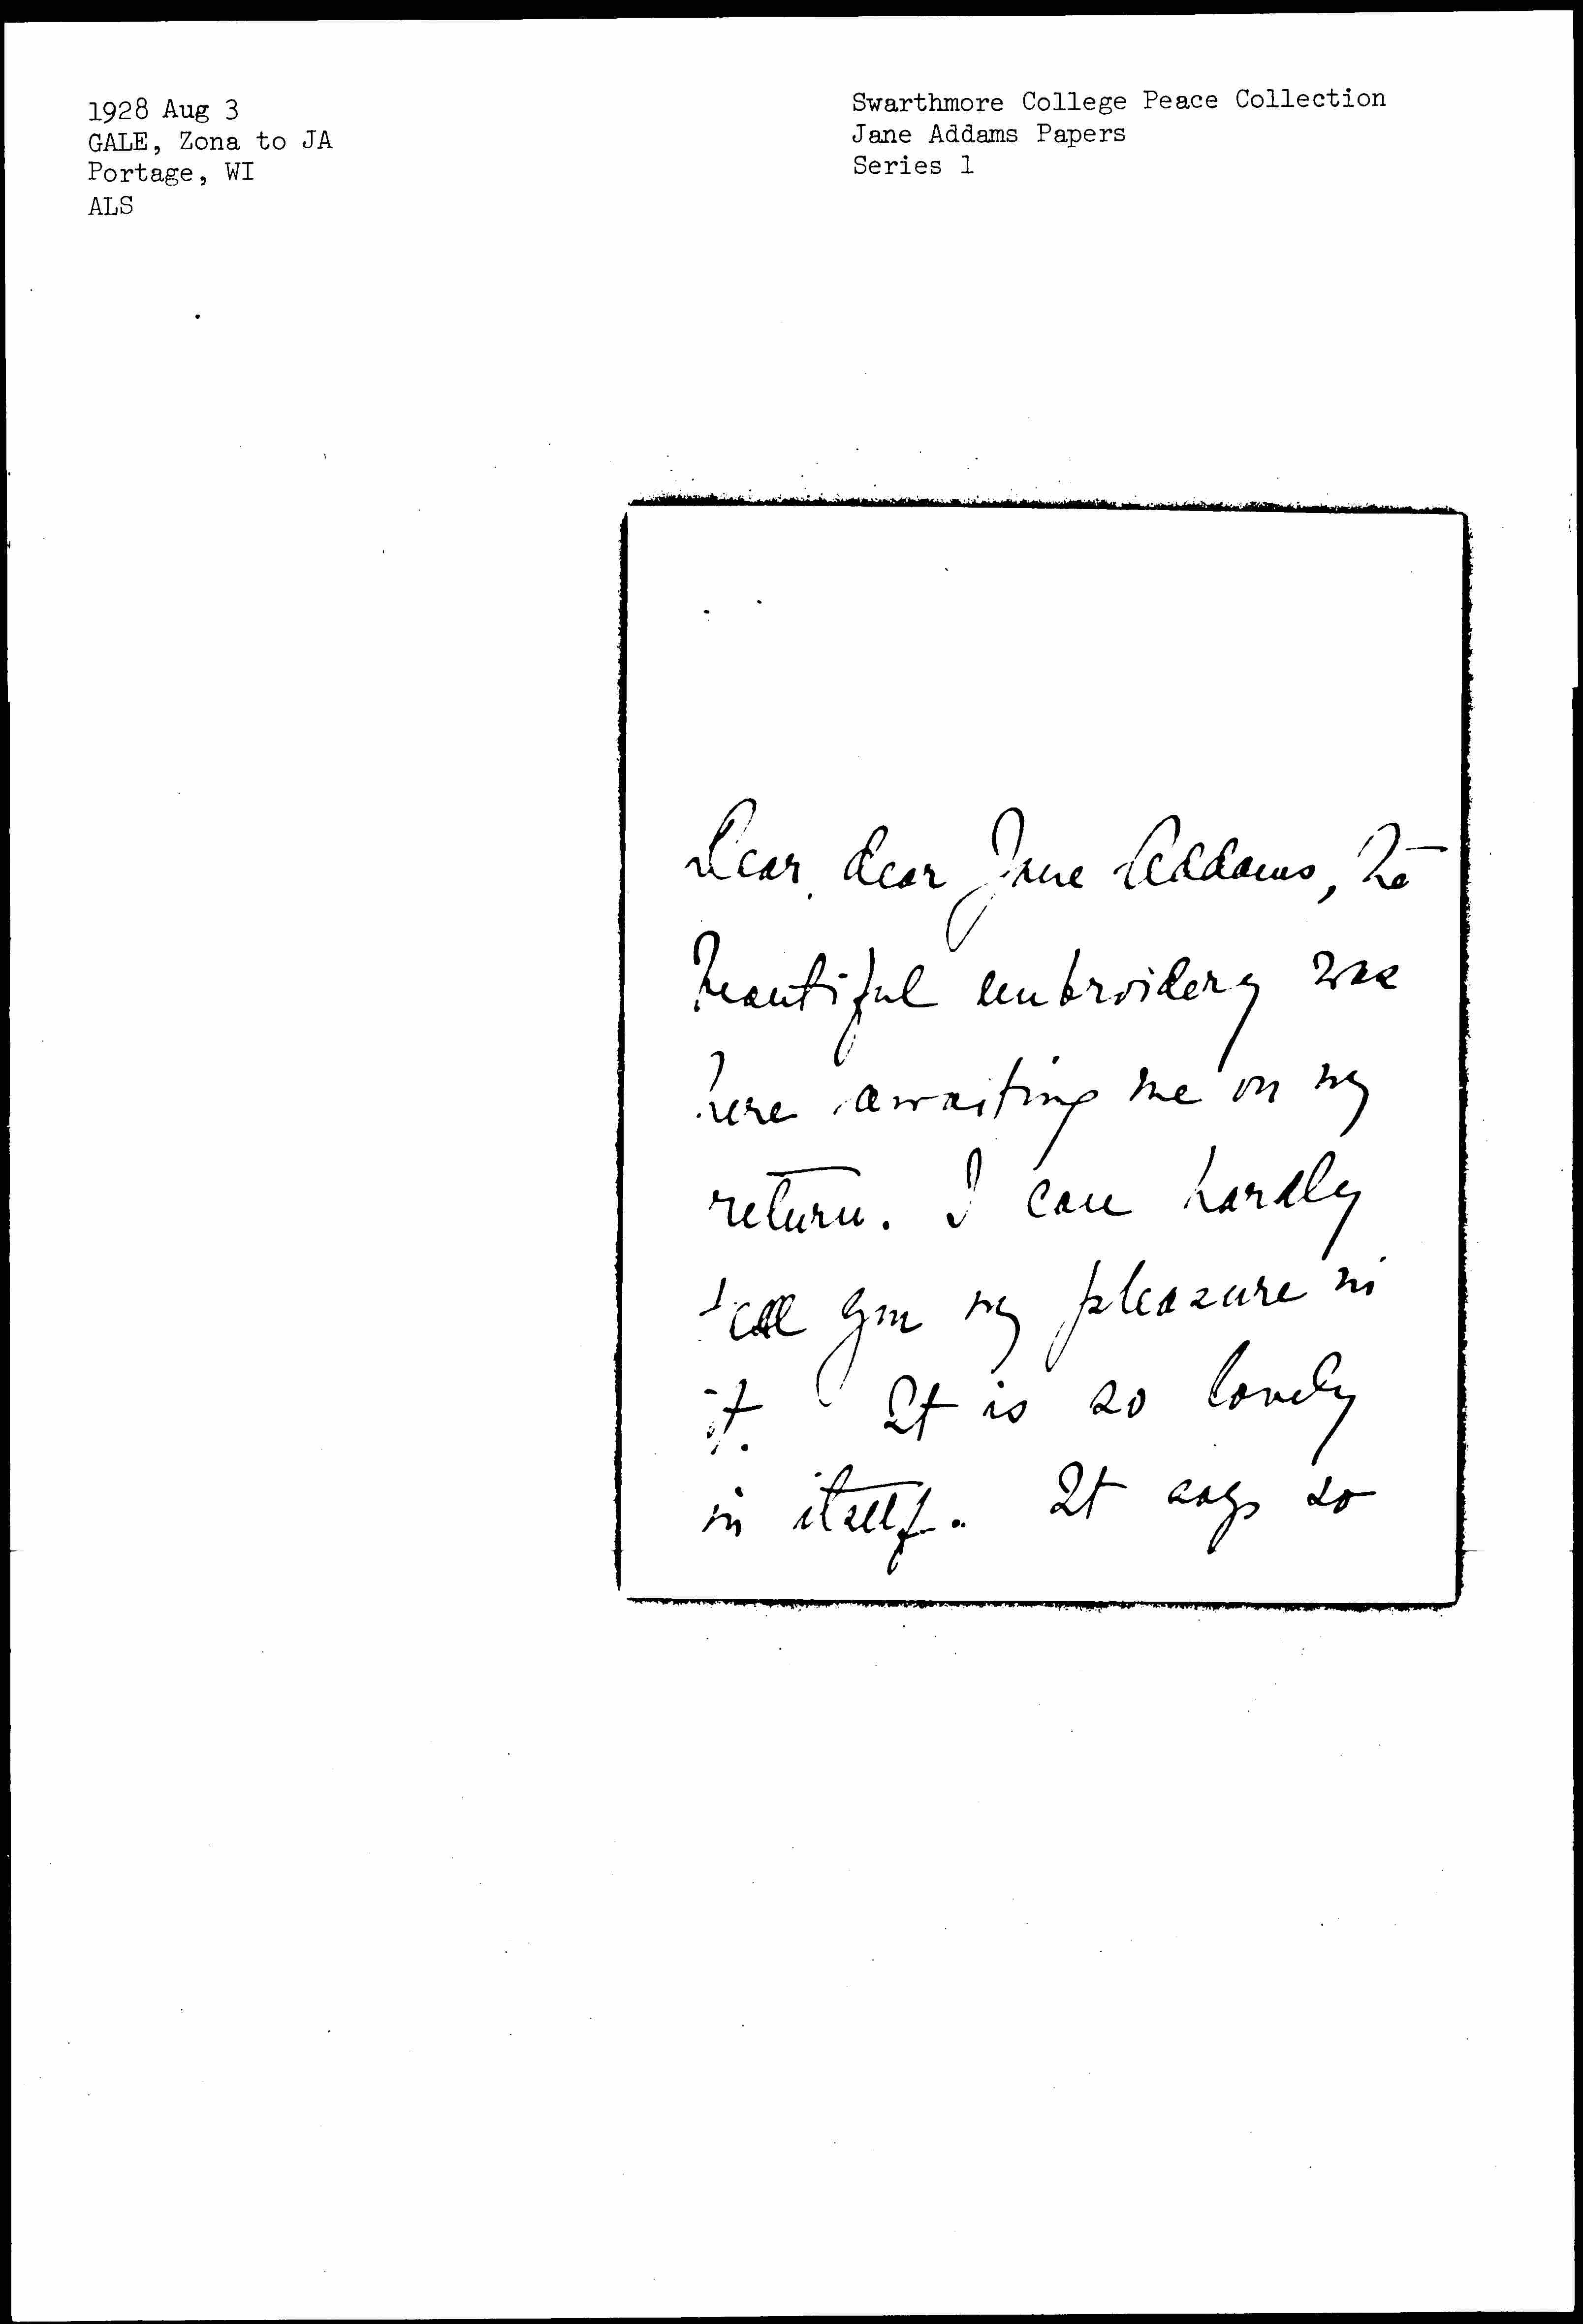 1928 Aug 3
GALE, Zona to JA
Portage, WI
ALS
Swarthmore College Peace Collection
Jane Addams Papers
Series 1
Dear, dear Jane Addams, The
beautiful embroidery was
here awaiting me on my
return. I can hardly
tell you my pleasure in
it. It is so lovely
in itself. It says so